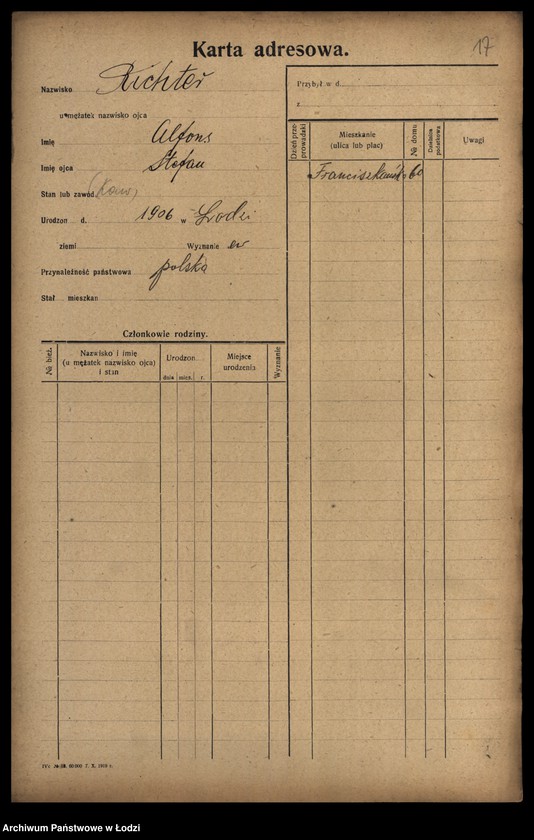 17
Karta adresowa.
Nazwisko Richter
u mężatek nazwisko ojca
Imię Alfons
Imię ojca Stefan
Stan lub zawód (Kaw,
Urodzon d. 1906 w Łodzi
ziemi Wyznanie ew
Przynależność państwowa polska
Stał mieszkan
Przybył w d.
z
Dzień przeprowadzki
Mieszkanie
(ulica lub plac)
№ domu
Dzielnica podatkowa
Uwagi
Franciszkańska 60
Członkowie rodziny.
№ bież.
Nazwisko i imię
(u mężatek nazwisko ojca)
i stan
Urodzon
dnia mies. r.
Miejsce
urodzenia
Wyznanie
7. X. 1918 r.
Archiwum Państwowe w Łodzi